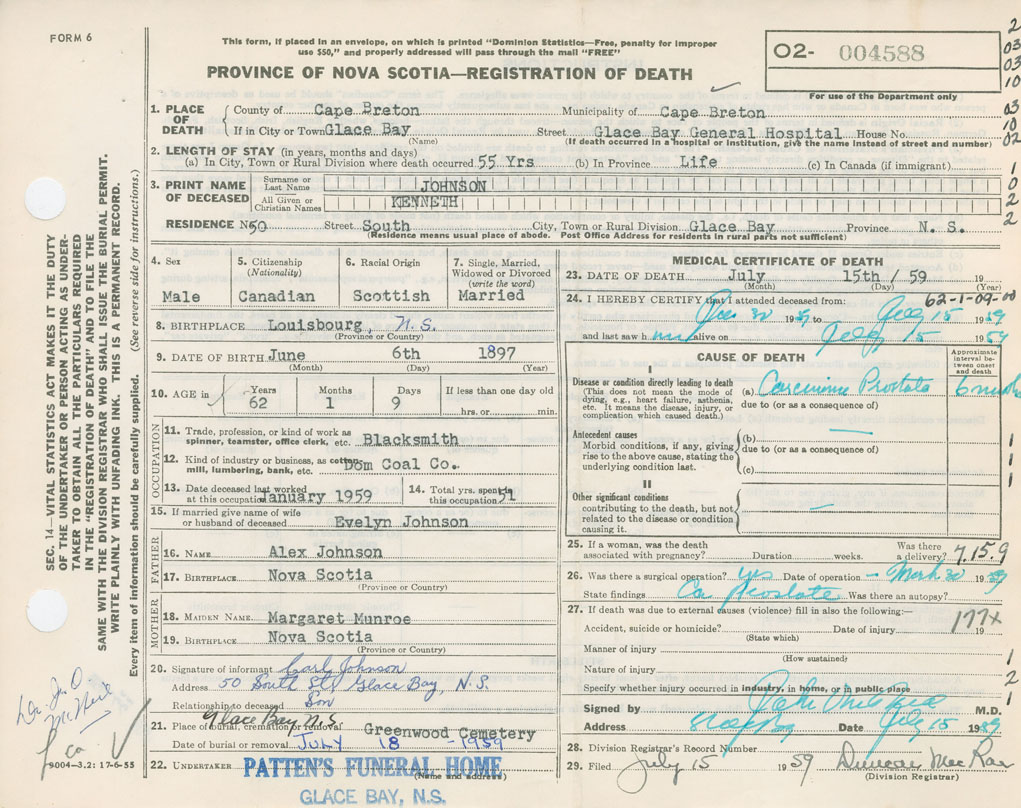 FORM 6
This form, if placed in an envelope, on which is printed "Dominion Statistics—Free, penalty for improper
use $50," and properly addressed will pass through the mail "FREE"
PROVINCE OF NOVA SCOTIA—REGISTRATION OF DEATH
02- 004588
For use of the Department only
2
03
03
10
03
10
02
1
0
2
2
SEC. 14—VITAL STATISTICS ACT MAKES IT THE DUTY
OF THE UNDERTAKER OR PERSON ACTING AS UNDER-
TAKER TO OBTAIN ALL THE PARTICULARS REQUIRED
IN THE "REGISTRATION OF DEATH" AND TO FILE THE
SAME WITH THE DIVISION REGISTRAR WHO SHALL ISSUE THE BURIAL PERMIT.
WRITE PLAINLY WITH UNFADING INK. THIS IS A PERMANENT RECORD.
Every item of information should be carefully supplied. (See reverse side for instructions.)
1. PLACE OF DEATH
County of Cape Breton Municipality of Cape Breton
If in City or Town Glace Bay Street Glace Bay General Hospital House No.
(Name) (If death occurred in a hospital or institution, give the name instead of street and number)
2. LENGTH OF STAY (in years, months and days)
(a) In City, Town or Rural Division where death occurred 55 Yrs (b) In Province Life (c) In Canada (if immigrant)
3. PRINT NAME OF DECEASED
Surname or Last Name JOHNSON
All Given or Christian Names KENNETH
RESIDENCE N50 Street South City, Town or Rural Division Glace Bay Province N. S.
(Residence means usual place of abode. Post Office Address for residents in rural parts not sufficient)
4. Sex
Male
5. Citizenship
(Nationality)
Canadian
6. Racial Origin
Scottish
7. Single, Married,
Widowed or Divorced
(write the word)
Married
8. BIRTHPLACE Louisbourg, N.S.
(Province or Country)
9. DATE OF BIRTH June 6th 1897
(Month) (Day) (Year)
10. AGE in
Years
62
Months
1
Days
9
If less than one day old
hrs. or min.
OCCUPATION
11. Trade, profession, or kind of work as
spinner, teamster, office clerk, etc. Blacksmith
12. Kind of industry or business, as cotton-
mill, lumbering, bank, etc. Dom Coal Co.
13. Date deceased last worked
at this occupation January 1959
14. Total yrs. spent in
this occupation 51
15. If married give name of wife
or husband of deceased Evelyn Johnson
FATHER
16. NAME Alex Johnson
17. BIRTHPLACE Nova Scotia
(Province or Country)
MOTHER
18. MAIDEN NAME Margaret Munroe
19. BIRTHPLACE Nova Scotia
(Province or Country)
20. Signature of informant Carl Johnson
Address 50 South St. Glace Bay, N.S.
Relationship to deceased Son
21. Place of burial, cremation or removal Glace Bay N.S. Greenwood Cemetery
Date of burial or removal JULY 18 -1959
22. UNDERTAKER PATTEN'S FUNERAL HOME
(Name and address)
GLACE BAY, N.S.
9004-3,2: 17-6-55
Dr. J. O
McNeil
ca
MEDICAL CERTIFICATE OF DEATH
23. DATE OF DEATH July 15th / 59 19
(Month) (Day) (Year)
24. I HEREBY CERTIFY that I attended deceased from:
62-1-09-00
30 1959 to July 15 1959
and last saw him alive on July 15 1959
CAUSE OF DEATH
Approximate
interval be-
tween onset
and death
I
Disease or condition directly leading to death
(This does not mean the mode of
dying, e.g., heart failure, asthenia,
etc. It means the disease, injury, or
complication which caused death.)
(a) Carcinoma Prostate 6 months
due to (or as a consequence of)
Antecedent causes
Morbid conditions, if any, giving
rise to the above cause, stating the
underlying condition last.
(b)
due to (or as a consequence of)
(c)
II
Other significant conditions
contributing to the death, but not
related to the disease or condition
causing it.
1
1
1
25. If a woman, was the death
associated with pregnancy? Duration weeks. Was there
a delivery? 7.15.9
26. Was there a surgical operation? yes Date of operation March 30 1959
State findings Ca Prostate Was there an autopsy?
27. If death was due to external causes (violence) fill in also the following:—
Accident, suicide or homicide? Date of injury 19
(State which)
177x
Manner of injury
(How sustained)
Nature of injury
Specify whether injury occurred in industry, in home, or in public place
1
2
1
Signed by M.D.
Address Glace Bay Date July 15 1959
28. Division Registrar's Record Number
29. Filed July 15 1959 Duncan MacRae
(Division Registrar)